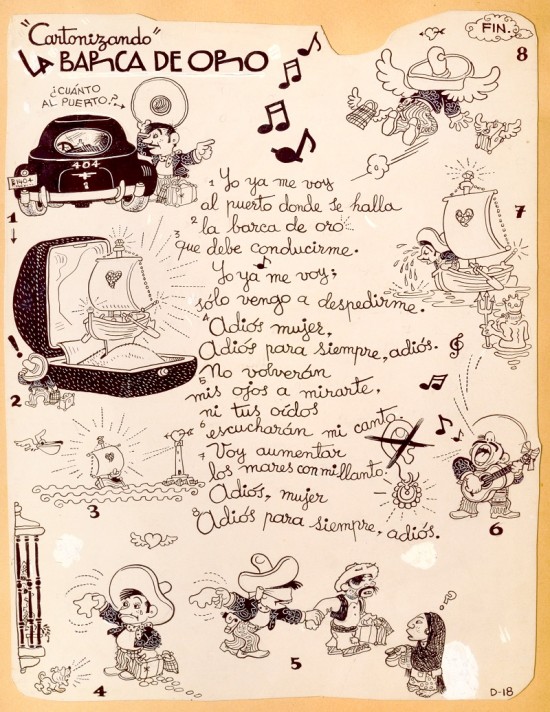 "Cartonizando"
LA BARCA DE ORO
FIN.
8
¿CUÁNTO
AL PUERTO?
404
1404
1
1 Yo ya me voy
al puerto donde se halla
2 la barca de oro...
3 que debe conducirme.
Yo ya me voy;
sólo vengo a despedirme.
4 Adiós mujer,
Adiós para siempre, adiós.
No volverán
5 mis ojos a mirarte,
ni tus oídos
6 escucharán mi canto.
7 Voy aumentar
los mares con mi llanto.
Adiós, mujer
8 Adiós para siempre, adiós.
7
!
2
3
6
4
5
?
D-18